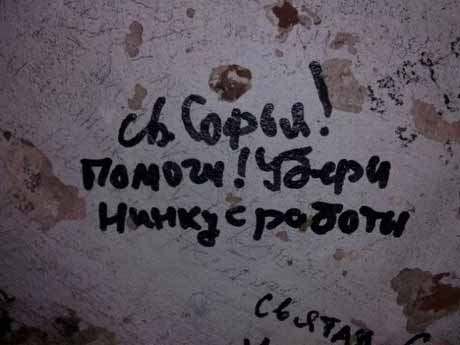 св. Софья!
Помоги! Убери
Нинку с работы
святая С